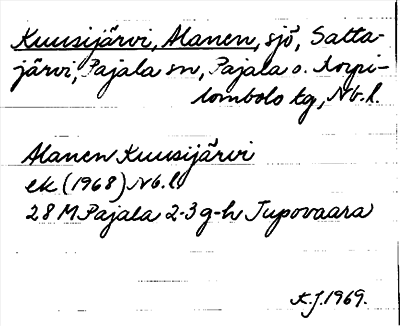 Kuusijärvi, Alanen, sjö, Satta-
järvi, Pajala sn, Pajala o. Korpi-
lombolo tg, Nb. l.
Alanen Kuusijärvi
ek (1968) Nb. l.
28 M Pajala 2-3 g-h Jupovaara
K.J. 1969.